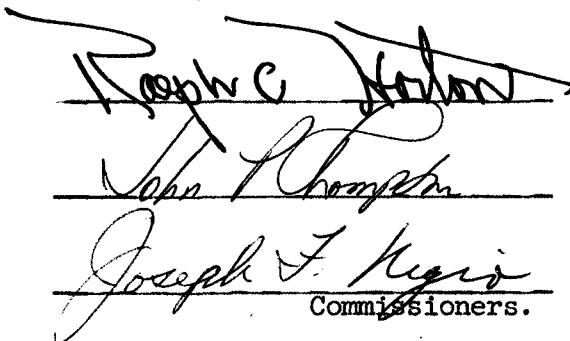 Ralph C Horton
John P Thompson
Joseph F. Negrio
Commissioners.